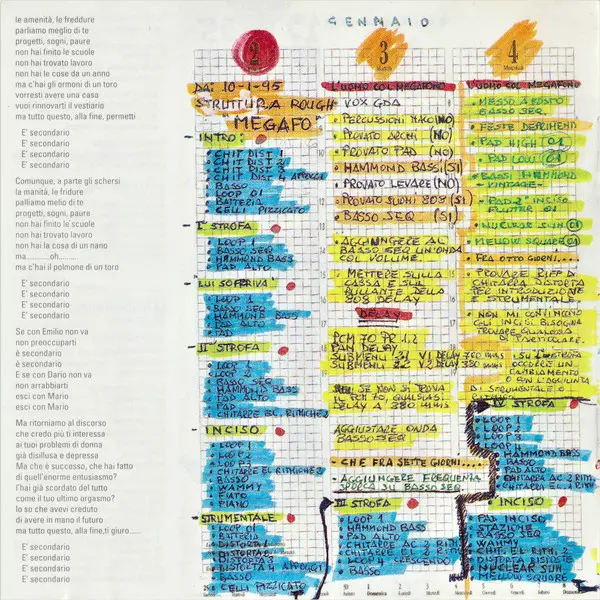 le amenità, le freddure
parliamo meglio di te
progetti, sogni, paure
non hai finito le scuole
non hai trovato lavoro
non hai le cose da un anno
ma c'hai gli ormoni di un toro
vorresti avere una casa
vuoi rinnovarti il vestiario
ma tutto questo, alla fine, permetti
E' secondario
E' secondario
E' secondario
E' secondario
Comunque, a parte gli schersi
la manità, le fridure
palliamo melio di te
progetti, sogni, paure
non hai finito le scuole
non hai trovato lavoro
non hai la cosa di un nano
ma.........oh........
ma c'hai il polmone di un toro
E' secondario
E' secondario
E' secondario
E' secondario
Se con Emilio non va
non preoccuparti
è secondario
è secondario
E se con Dario non va
non arrabbiarti
esci con Mario
esci con Mario
Ma ritorniamo al discorso
che credo più ti interessa
ai tuoi problemi di donna
già disillusa e depressa
Ma che è successo, che hai fatto
di quell'enorme entusiasmo?
l'hai già scordato del tutto
come il tuo ultimo orgasmo?
Io so che avevi creduto
di avere in mano il futuro
ma tutto questo, alla fine,ti giuro.....
E' secondario
E' secondario
E' secondario
E' secondario
GENNAIO
2
DA: 10-1-95
STRUTTURA ROUGH
"MEGAFO"
INTRO:
CHIT DIST 1
CHIT DIST 2
CHIT DIST 3
CHIT DIST 4 ARPEGGI
BASSO
LOOP 01
BATTERIA
CELLI PIZZICATO
I STROFA
LOOP 1
BASSO SEQ
HAMMOND BASS
PAD ALTO
LUI SOFFRIVA
LOOP 1
BASSO SEQ
HAMMOND BASS
PAD ALTO
PAD
II STROFA
LOOP 1
LOOP 2
BASSO SEQ
HAMMOND BASS
PAD ALTO
PAD
CHITARRE EL RITMICHE 2
INCISO
LOOP 1
LOOP 2
LOOP 3
CHITARRE EL RITMICHE 2
BASSO
WAHMY
FIATO
PIANO
STRUMENTALE
LOOP 01
BATTERIA
DISTORTA 1
DISTORTA 2
DISTORTA 3
DISTORTA 4 ARPEGGI
BASSO
CELLI PIZZICATO
3
Martedì
L'UOMO COL MEGAFONO
VOX GDA
PERCUSSIONI MIKO (NO)
PROVATO ARCHI (NO)
PROVATO PAD (NO)
HAMMOND BASSI (SI)
PROVATO LEVARE (NO)
PROVATO SUONI 808 (SI)
BASSO SEQ (SI)
AGGIUNGERE AL
BASSO SEQ UN'ONDA
COL VOLUME.
METTERE SULLA
CASSA E SUL
RULLANTE DELLA
808 DELAY
DELAY
PCM 70 PR 1.2
PAN DELAY
SUBMENU 21 V1 DELAY 760 mms
SUBMENU 22 V2 DELAY 380 mms
SE NON SI TROVA
IL PCM 70, QUALSIASI
DELAY A 380 mms
AGGIUSTARE ONDA
BASSO SEQ
- CHE FRA SETTE GIORNI....
AGGIUNGERE FREQUENZA
SPORCA SU BASSO SEQ
III STROFA
LOOP
HAMMOND BASS
PAD ALTO
CHITARRE AC 2 RITM.
CHITARRE EL 2 RITM
LOOP 4 CRESCENDO
BASSO
4
Mercoledì
L'UOMO COL MEGAFONO
MESSO A POSTO
BASSO SEQ.
FESTE DEPRIMENDI
PAD HIGH 01
PAD LOW 01
BASSI HAMMOND
- VINTAGE -
PAD 2 INCISO
NUCLEAR SUN 01
MELLOW SQUARE 01
FRA OTTO GIORNI...
PROVARE RIFF DI
CHITARRA DISTORTA
PER INTRODUZIONE
E STRUMENTALE
NON MI CONVINCONO
GLI INCISI, BISOGNA
PROVARE QUALCOSA
DI PARTICOLARE.
SU I STROFA
OCCORRE UN
CAMBIAMENTO
O CON L'AGGIUNTA
DI STRUMENTALE O
IV STROFA
LOOP 1
LOOP 2
LOOP 3
HAMMOND BASS
BASSO
PAD ALTO
CHITARRA AC 2 RITM.
CHITARRA EL 2 RITM
INCISO
PAD INCISO
STAZIONE
BASSO SEQ
WAHMY
CHIT. EL RITM. 2
DISTORTA DISPOSTE
NUCLEAR SUN
MELLOW SQUARE